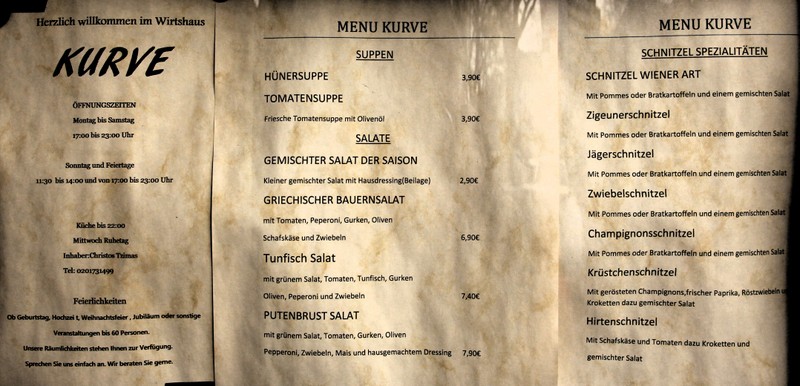 Herzlich willkommen im Wirtshaus
KURVE
ÖFFNUNGSZEITEN
Montag bis Samstag
17:00 bis 23:00 Uhr
Sonntag und Feiertage
11:30 bis 14:00 und von 17:00 bis 23:00 Uhr
Küche bis 22:00
Mittwoch Ruhetag
Inhaber:Christos Tsimas
Tel: 0201731499
Feierlichkeiten
Ob Geburtstag, Hochzei t, Weihnachtsfeier , Jubiläum oder sonstige
Veranstaltungen bis 60 Personen.
Unsere Räumlichkeiten stehen Ihnen zur Verfügung.
Sprechen Sie uns einfach an. Wir beraten Sie gerne.
MENU KURVE
SUPPEN
HÜNERSUPPE 3,90€
TOMATENSUPPE
Friesche Tomatensuppe mit Olivenöl 3,90€
SALATE
GEMISCHTER SALAT DER SAISON
Kleiner gemischter Salat mit Hausdressing(Beilage) 2,90€
GRIECHISCHER BAUERNSALAT
mit Tomaten, Peperoni, Gurken, Oliven
Schafskäse und Zwiebeln 6,90€
Tunfisch Salat
mit grünem Salat, Tomaten, Tunfisch, Gurken
Oliven, Peperoni und Zwiebeln 7,40€
PUTENBRUST SALAT
mit grünem Salat, Tomaten, Gurken, Oliven
Pepperoni, Zwiebeln, Mais und hausgemachtem Dressing 7,90€
MENU KURVE
SCHNITZEL SPEZIALITÄTEN
SCHNITZEL WIENER ART
Mit Pommes oder Bratkartoffeln und einem gemischten Salat
Zigeunerschnitzel
Mit Pommes oder Bratkartoffeln und einem gemischten Salat
Jägerschnitzel
Mit Pommes oder Bratkartoffeln und einem gemischten Salat
Zwiebelschnitzel
Mit Pommes oder Bratkartoffeln und einem gemischten Salat
Champignonsschnitzel
Mit Pommes oder Bratkartoffeln und einem gemischten Salat
Krüstchenschnitzel
Mit gerösteten Champignons,frischer Paprika, Röstzwiebeln
Kroketten dazu gemischter Salat
Hirtenschnitzel
Mit Schafskäse und Tomaten dazu Kroketten und
gemischter Salat